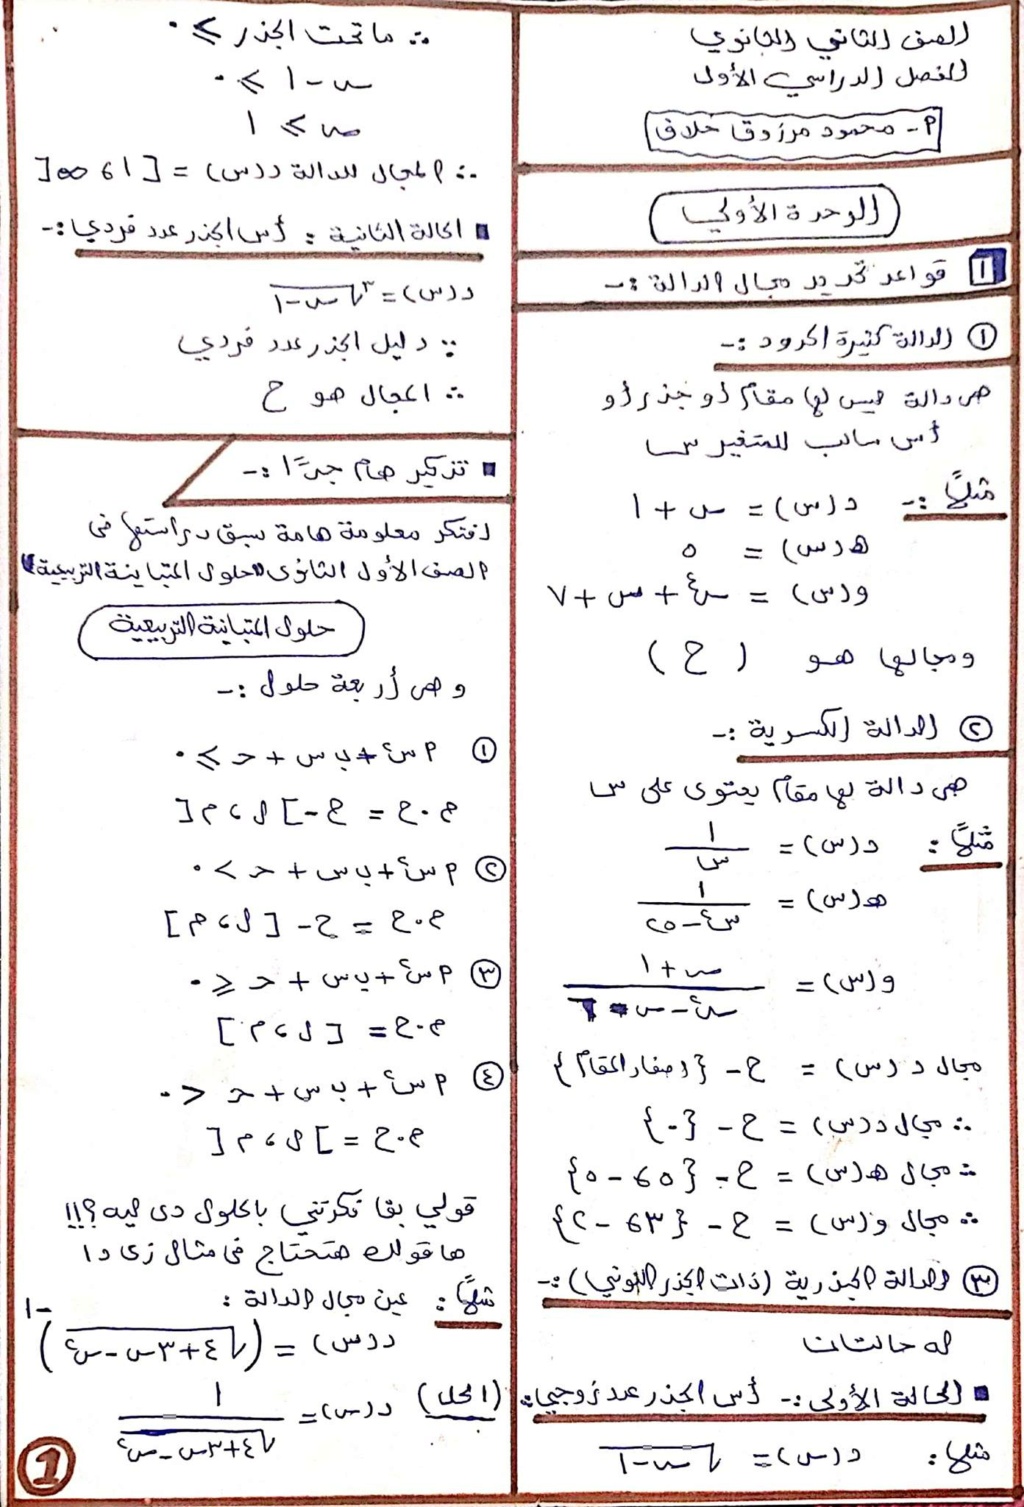 الصف الثاني الثانوي
الفصل الدراسي الأول
م- محمود مرزوق خلاف
الوحدة الأولي
١ قواعد تحديد مجال الدالة :-
① الدالة كثيرة الحدود :-
هى دالة ليس لها مقام أو جذر أو
أس سالب للمتغير س
مثلاً :- د(س) = س + ١
هـ(س) = ٥
و(س) = س٢ + س + ٧
ومجالها هو ( ح )
② الدالة الكسرية :-
هى دالة لها مقام يحتوى على س
مثلاً : د(س) = ١/س
هـ(س) = ١/(س٢-٢٥)
و(س) = (س+١)/(س٢-س-٦)
مجال د(س) = ح - {أصفار المقام}
∴ مجال د(س) = ح - {٠}
∴ مجال هـ(س) = ح - {٥، -٥}
∴ مجال و(س) = ح - {٣، -٢}
③ الدالة الجذرية (ذات الجذر النوني) :-
له حالتان
■ الحالة الأولى :- أس الجذر عدد زوجي :
مثلاً : د(س) = √(س-١)
∴ ما تحت الجذر ≥ ٠
س - ١ ≥ ٠
س ≥ ١
∴ المجال للدالة د(س) = [١، ∞[
■ الحالة الثانية : أس الجذر عدد فردي :-
د(س) = ³√(س-١)
∵ دليل الجذر عدد فردي
∴ المجال هو ح
■ تذكير هام جدًا :-
افتكر معلومة هامة سبق دراستها فى
الصف الأول الثانوى "حلول المتباينة التربيعية"
حلول المتبانية التربيعية
وهى أربعة حلول :-
① م س٢ + ب س + حـ ≥ ٠
م.ح = ح - ]ل، م[
② م س٢ + ب س + حـ > ٠
م.ح = ح - [ل، م]
③ م س٢ + ب س + حـ ≤ ٠
م.ح = [ل، م]
④ م س٢ + ب س + حـ < ٠
م.ح = ]ل، م[
قولي بقا فكرتني بالحلول دى ليه؟!!!
هاقولك هتحتاج فى مثال زى دا
مثلاً : عين مجال الدالة :
د(س) = (√(٤+٣س-س٢))⁻¹
(الحل) د(س) = ١/√(٤+٣س-س٢)
1